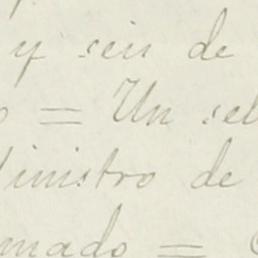 y seis de
o = Un sel
inistro de
mado =